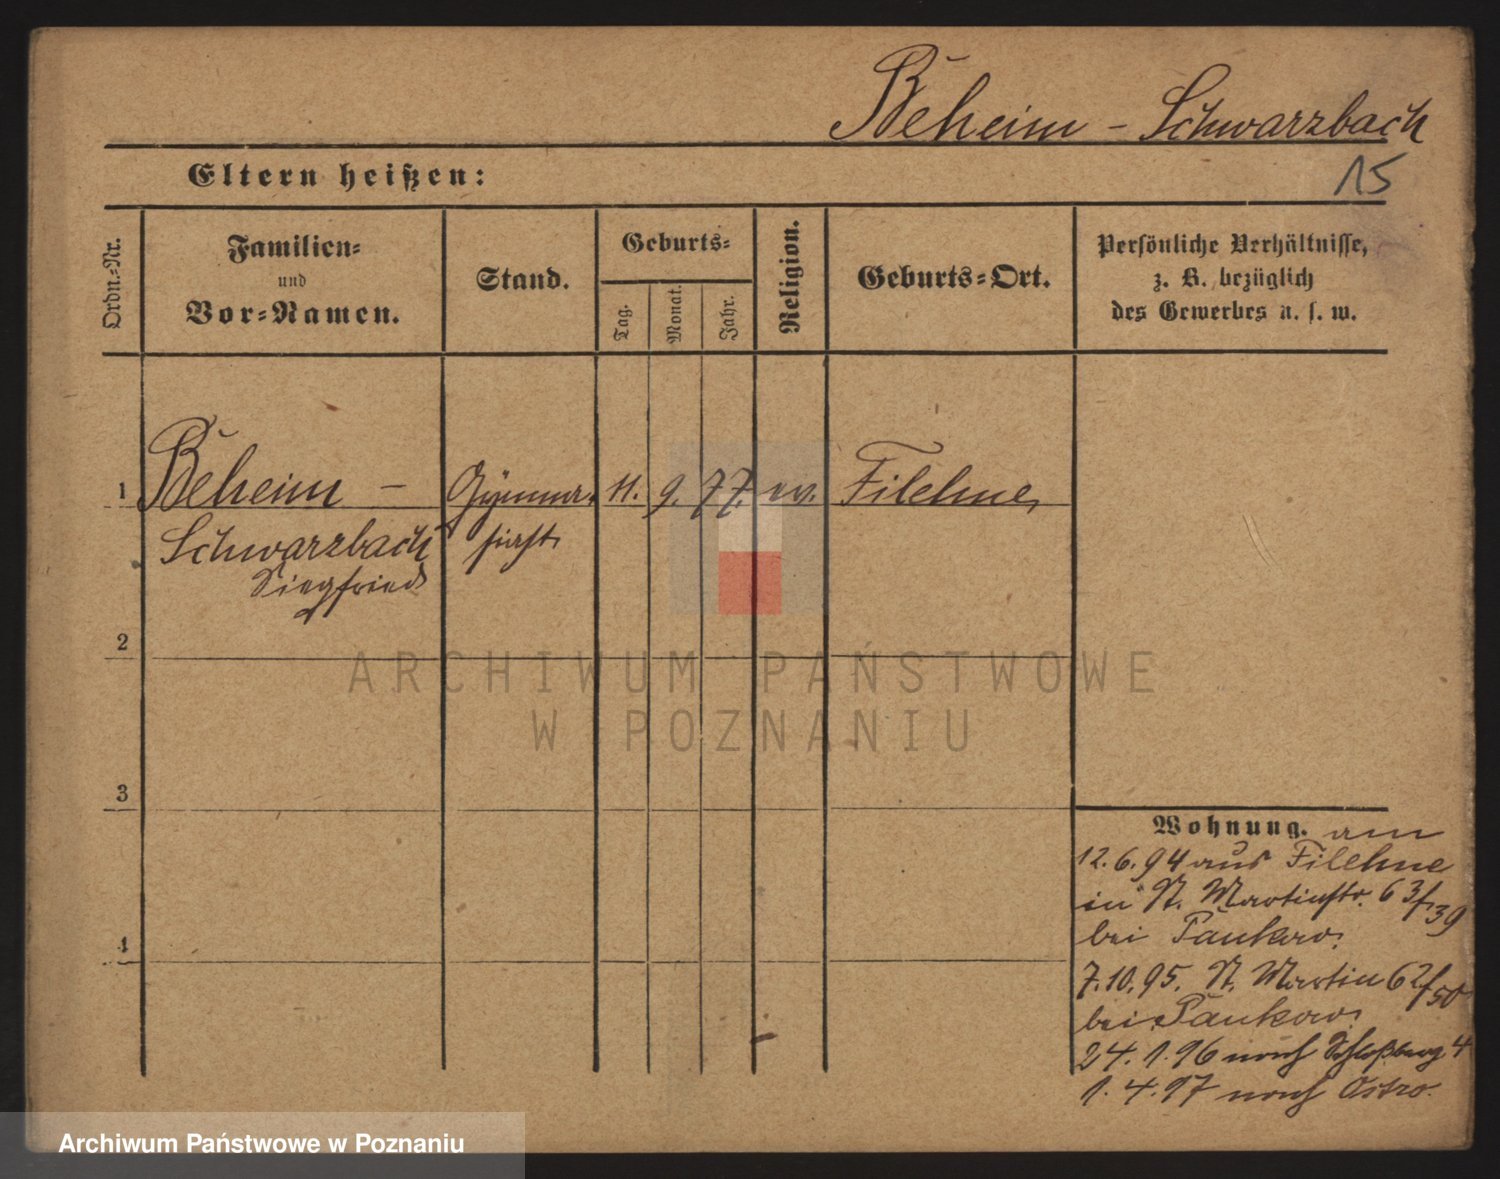 Beheim - Schwarzbach
15
Eltern heißen:
Ordn.=Nr.
Familien=
und
Vor=Namen.
Stand.
Geburts=
Tag.
Monat.
Jahr.
Religion.
Geburts=Ort.
Persönliche Verhältnisse,
z. B. bezüglich
des Gewerbes u. s. w.
1 Beheim - Gymna- 11. 9. 77. ev. Filehne
Schwarzbach siast
Siegfried
2
ARCHIWUM PAŃSTWOWE
W POZNANIU
3
4
Wohnung. am
12.6.94 aus Filehne
in St. Martinstr. 63/39
bei
7.10.95. St. Martin 62/50
bei
24.1.96 nach Schloßberg 4
1.4.97 nach Ostro.
Archiwum Państwowe w Poznaniu